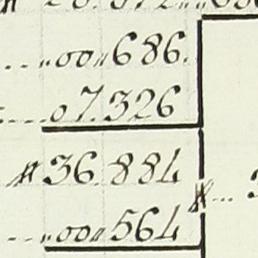 ..,,00,,686.
..07.326
#36.884
..,,00,,564